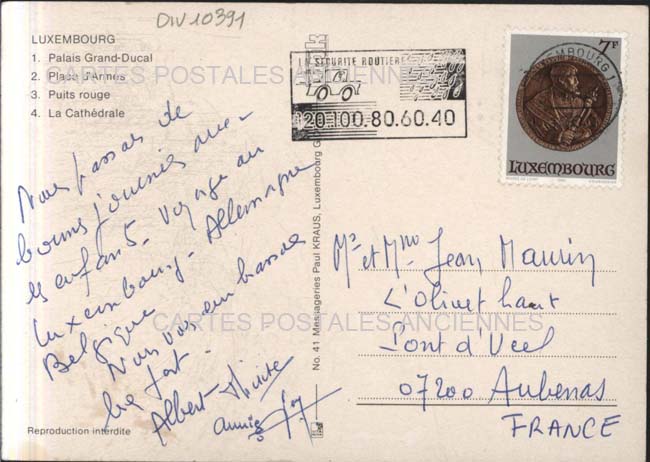 DIV10391
LUXEMBOURG
1. Palais Grand-Ducal
2. Place d'Armes
3. Puits rouge
4. La Cathédrale
CARTES POSTALES ANCIENNES
LA SECURITE ROUTIERE
20.100.80.60.40
LUXEMBOURG 1
7F
LUXEMBOURG
Nous passons de
bonnes journées avec
les enfants. Voyage au
Luxembourg. Allemagne
Belgique
Nous vous embrassons
bien fort.
Albert
annie
No. 41 Messageries Paul KRAUS, Luxembourg
Mr et Mme Jean Maurin
L'Olivet haut
Pont d'Ucel
07200 Aubenas
FRANCE
CARTES POSTALES ANCIENNES
Reproduction interdite